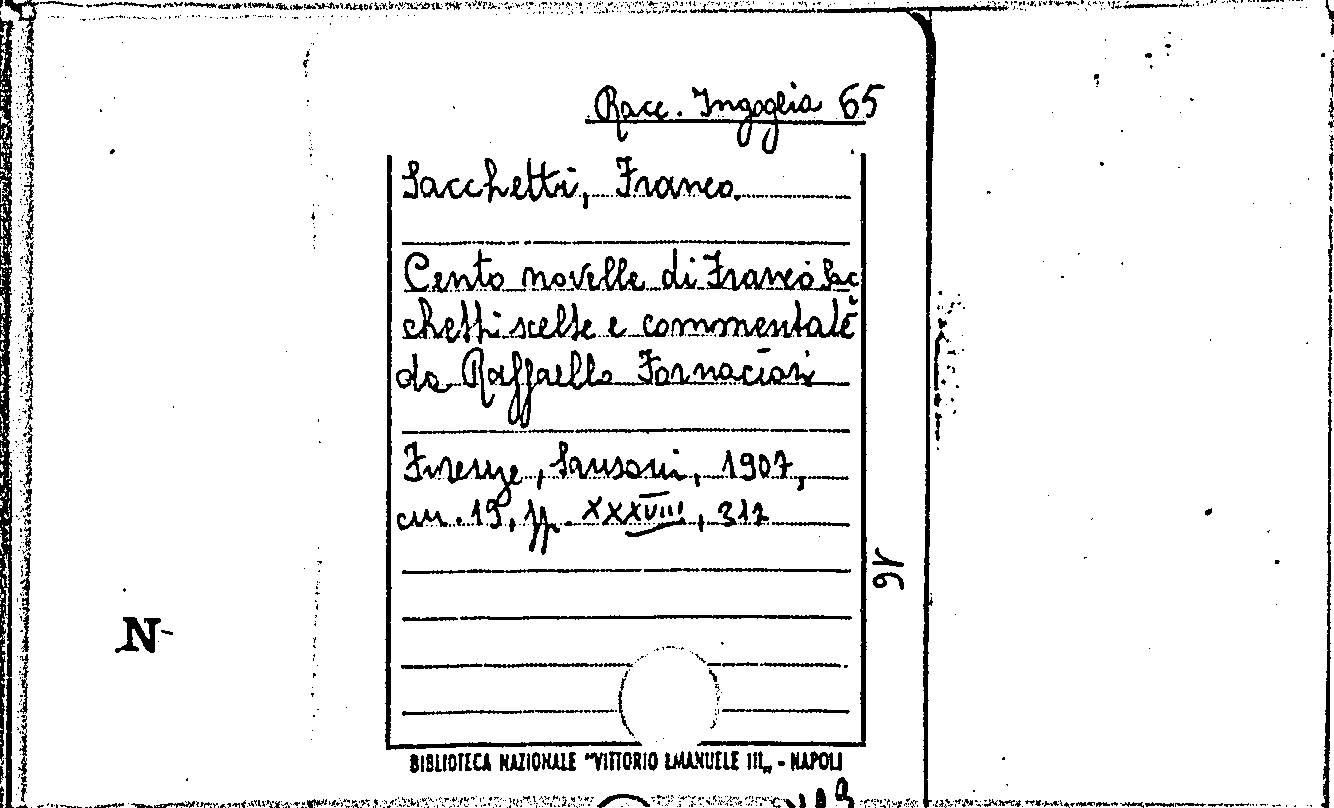 Racc. Ingoglia 65
Sacchetti, Franco
Cento novelle di Franco Sac
chetti scelte e commentate
da Raffaello Fornaciari
Firenze, Sansoni, 1907,
cm. 19, pp. XXXVIII, 317
16
N
BIBLIOTECA NAZIONALE "VITTORIO EMANUELE III„ - NAPOLI